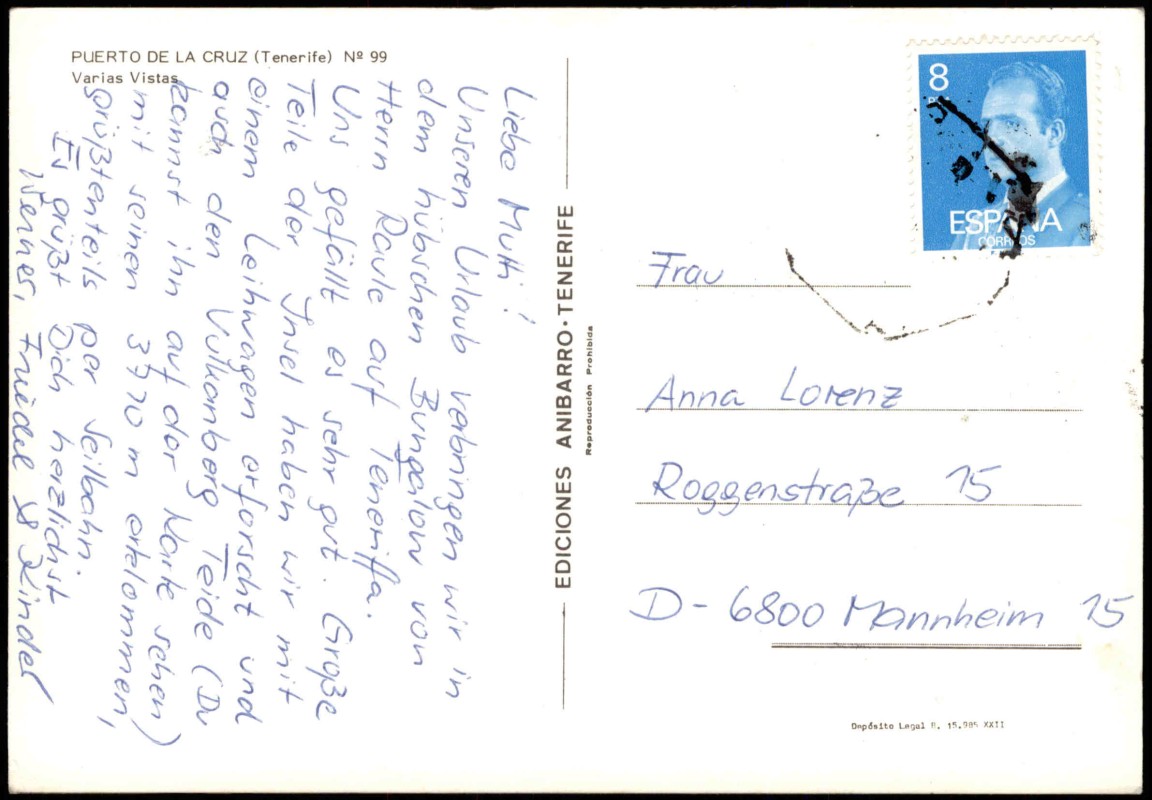 PUERTO DE LA CRUZ (Tenerife) Nº 99
Varias Vistas
Liebe Mutti!
Unseren Urlaub verbringen wir in
dem hübschen Bungalow von
Herrn Raule auf Teneriffa.
Uns gefällt es sehr gut. Große
Teile der Insel haben wir mit
einem Leihwagen erforscht und
auch den Vulkanberg Teide (Du
kannst ihn auf der Karte sehen)
mit seinen 3720 m erklommen,
größtenteils per Seilbahn.
Es grüßt Dich herzlichst
Werner, Friedel & Kinder
EDICIONES ANIBARRO · TENERIFE
Reproducción Prohibida
8
ESPAÑA
CORREOS
Frau
Anna Lorenz
Roggenstraße 15
D-6800 Mannheim 15
Depósito Legal B. 15.985 XXII